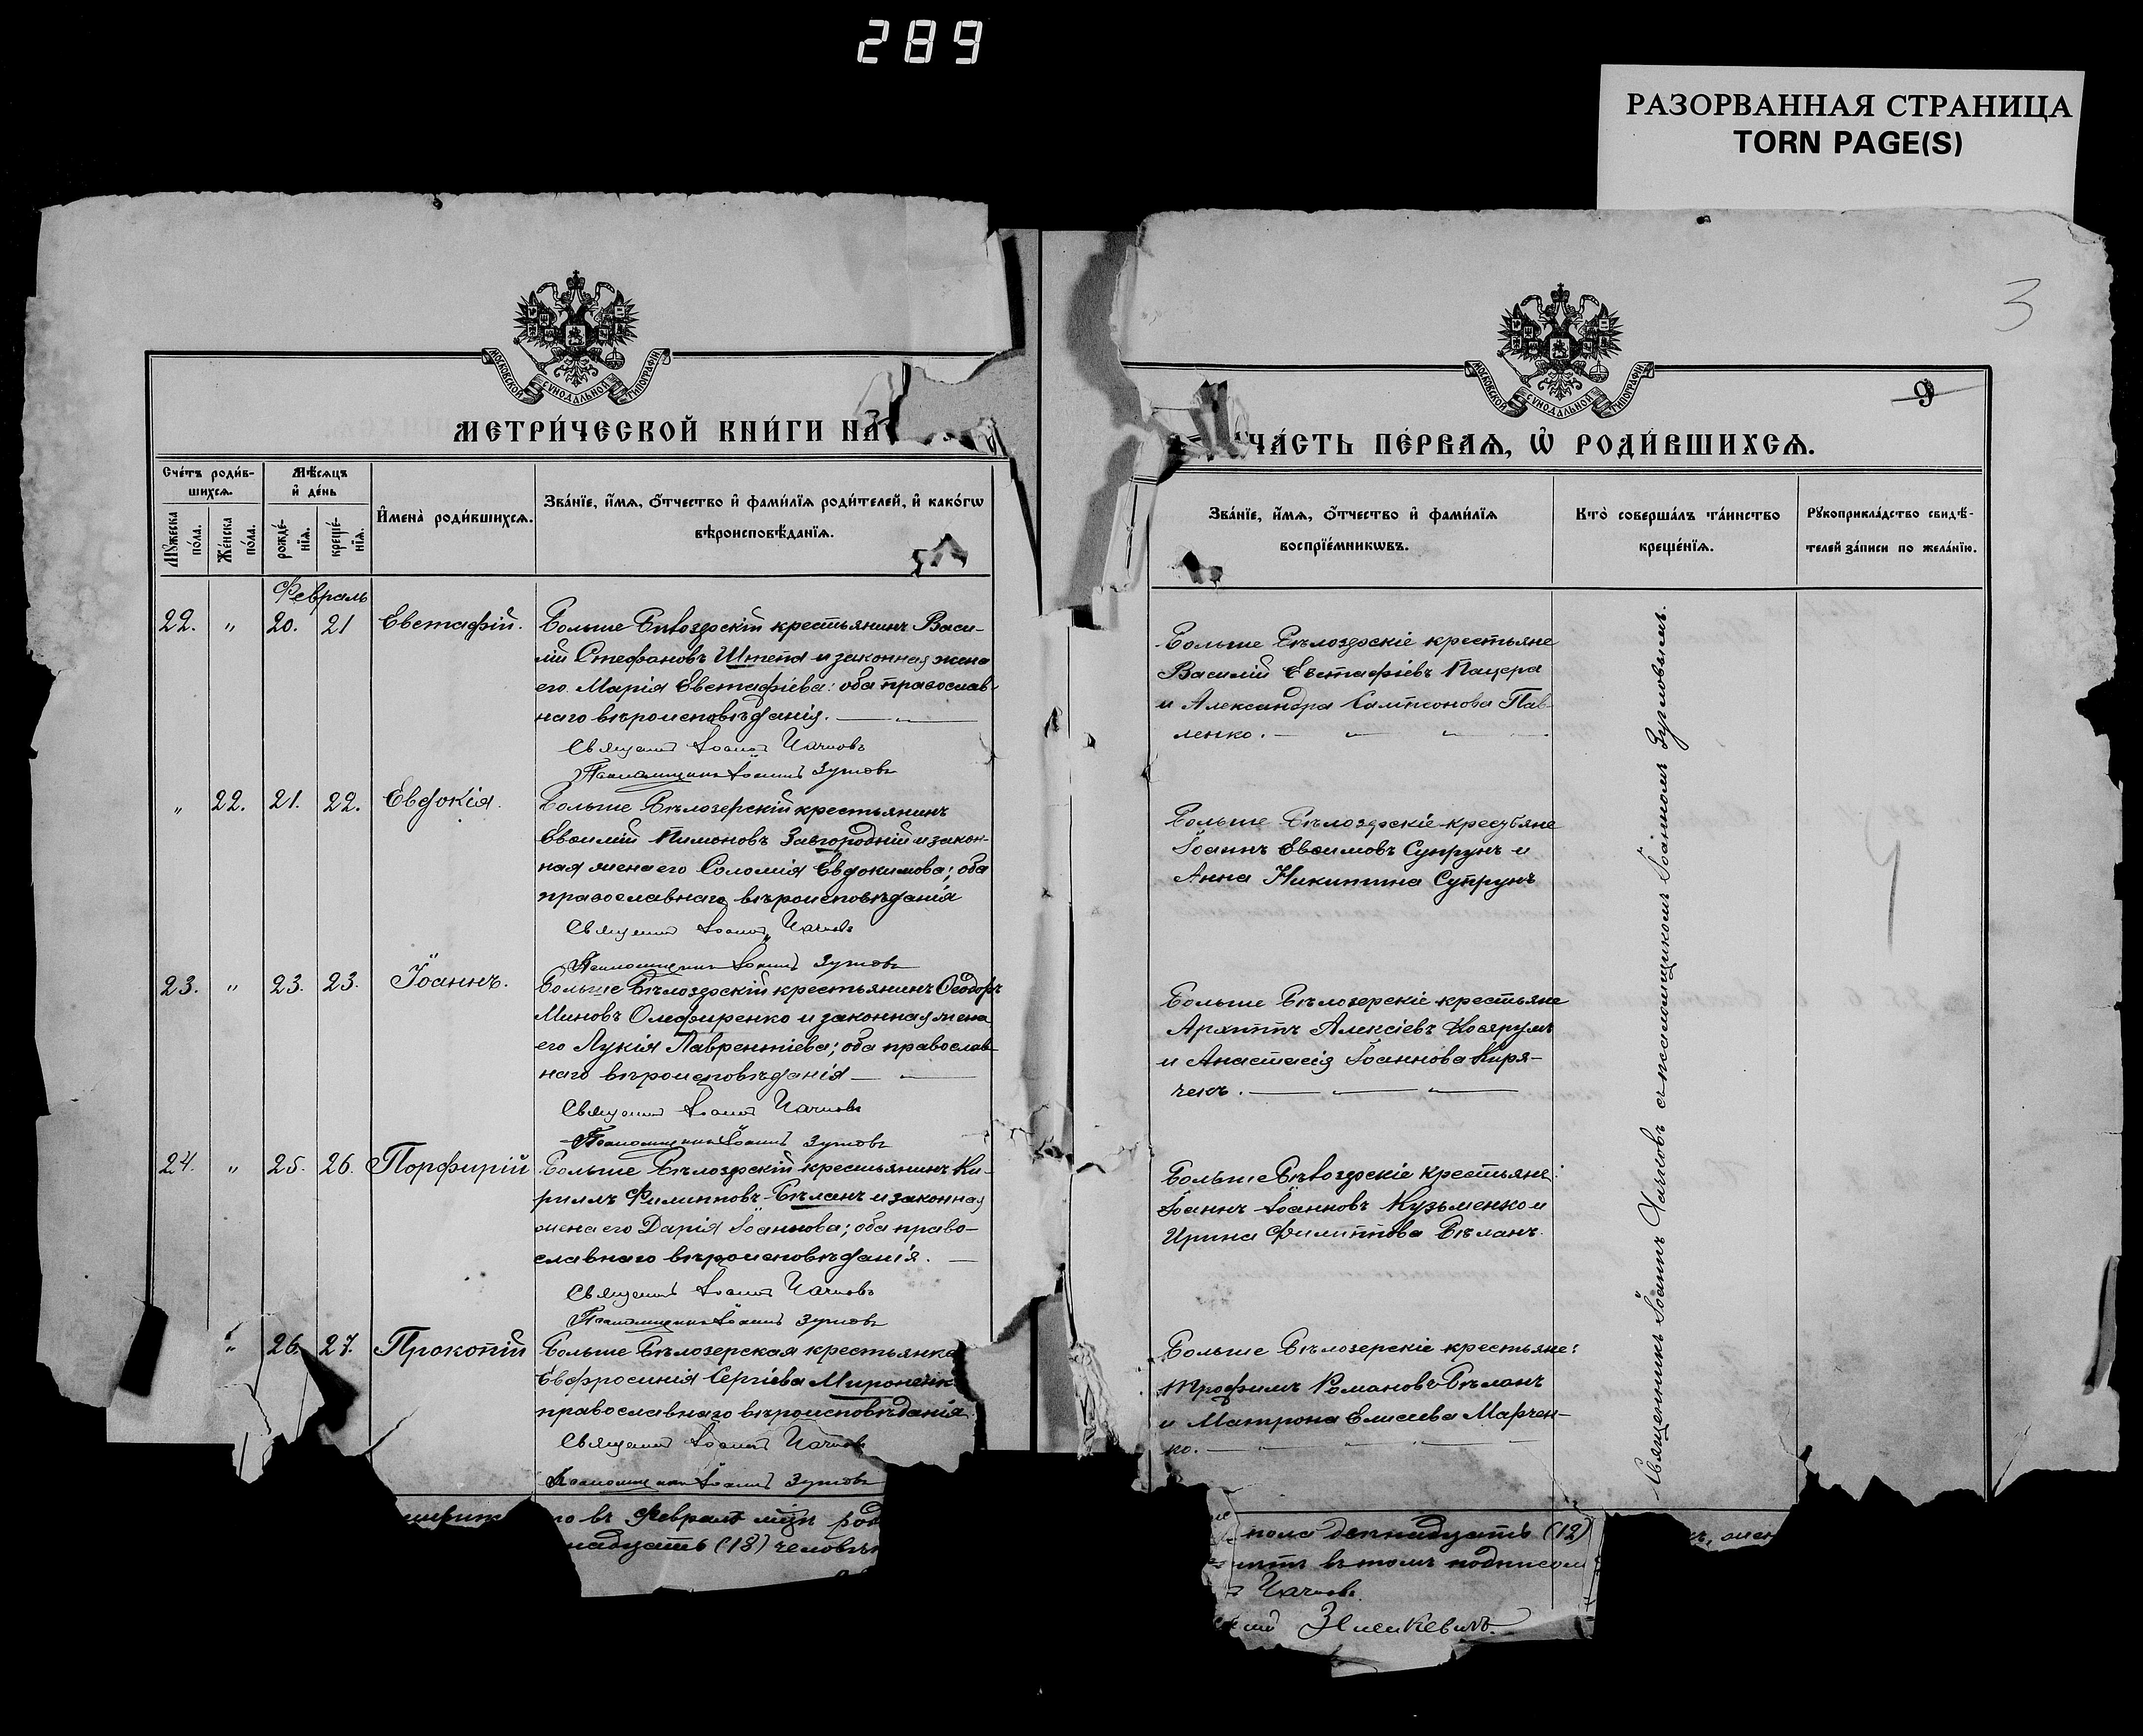 289
РАЗОРВАННАЯ СТРАНИЦА
TORN PAGE(S)
3
МОСКОВСКОЙ СѴНОДАЛЬНОЙ ТИПОГРАФІИ
МЕТРИ́ЧЕСКОЙ КНИ́ГИ НА
Сче́тъ роди́в-
шихсѧ.
Мѣ́сѧцъ
и҆ де́нь
И҆мена̀ роди́вшихсѧ.
Зва́нїе, и҆́мѧ, ѻ҆́тчество и҆ фами́лїѧ роди́телей, и҆ како́гѡ
вѣроисповѣ́данїѧ.
Мꙋ́жеска
по́ла.
Же́нска
по́ла.
рожде́-
нїѧ.
креще́-
нїѧ.
Февраль
22. " 20. 21 Евстафій.
Больше Бѣлозерскій крестьянинъ Васи-
лій Стефановъ Штепа и законная жена
его Марія Евстафіева: оба православ-
наго вѣроисповѣданія.
Священникъ Іоаннъ Чачковъ
Псаломщикъ Іоаннъ Зутовъ
" 22. 21. 22. Евдокія.
Больше Бѣлозерскій крестьянинъ
Евѳимій Пимоновъ Завгородній и закон-
ная жена его Соломія Евдокимова; оба
православнаго вѣроисповѣданія
Священникъ Іоаннъ Чачковъ
Псаломщикъ Іоаннъ Зутовъ
23. " 23. 23. Іоаннъ.
Больше Бѣлозерскій крестьянинъ Ѳеодоръ
Миновъ Олефиренко и законная жена
его Лукія Лаврентіева; оба православ-
наго вѣроисповѣданія
Священникъ Іоаннъ Чачковъ
Псаломщикъ Іоаннъ Зутовъ
24. " 25. 26. Порфирій
Больше Бѣлозерскій крестьянинъ Ки-
риллъ Филипповъ Бѣланъ и законная
жена его Дарія Іоаннова; оба право-
славнаго вѣроисповѣданія.
Священникъ Іоаннъ Чачковъ
Псаломщикъ Іоаннъ Зутовъ
" 26. 27. Прокопій
Больше Бѣлозерская крестьянка
Евфросинія Сергіева Мироненк
православнаго вѣроисповѣданія
Священникъ Іоаннъ Чачковъ
Псаломщикъ Іоаннъ Зутовъ
го въ Февралѣ мцѣ род
надцать (18) человѣкъ
МОСКОВСКОЙ СѴНОДАЛЬНОЙ ТИПОГРАФІИ
9
ЧА́СТЬ ПЕ́РВАѦ, Ѡ҆ РОДИ́ВШИХСѦ.
Зва́нїе, и҆́мѧ, ѻ҆́тчество и҆ фами́лїѧ
воспрїе́мникѡвъ.
Кто̀ соверша́лъ та́инство
креще́нїѧ.
Рꙋкоприкла́дство свидѣ́-
телей за́писи по жела́нїю.
Больше Бѣлозерскіе крестьяне
Василій Евстафіевъ Пацера
и Александра Сампсонова Пав-
ленко.
Больше Бѣлозерскіе крестьяне
Іоаннъ Евѳимовъ Супрунъ и
Анна Никитина Супрунъ
Больше Бѣлозерскіе крестьяне
Архиппъ Алексіевъ
и Анастасія Іоаннова Киря-
чекъ.
Больше Бѣлозерскіе крестьяне:
Іоаннъ Іоанновъ Кузьменко и
Ирина Филиппова Бѣланъ.
Больше Бѣлозерскіе крестьяне:
Трофимъ Романовъ Бѣланъ
и Матрона Елисеева Марчен-
ко.
Священникъ Іоаннъ Чачковъ съ псаломщикомъ Іоанномъ Зутовымъ.
пола двѣнадцать (12)
въ томъ подписом
Чачковъ.